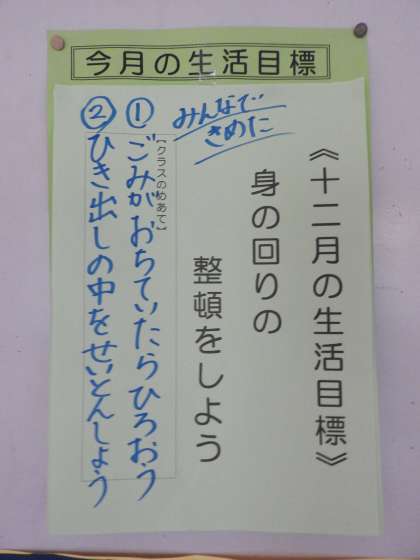 今月の生活目標
《十二月の生活目標》
身の回りの
整頓をしよう
みんなで
きめた
【クラスのめあて】
①ごみがおちていたらひろおう
②ひき出しの中をせいとんしよう